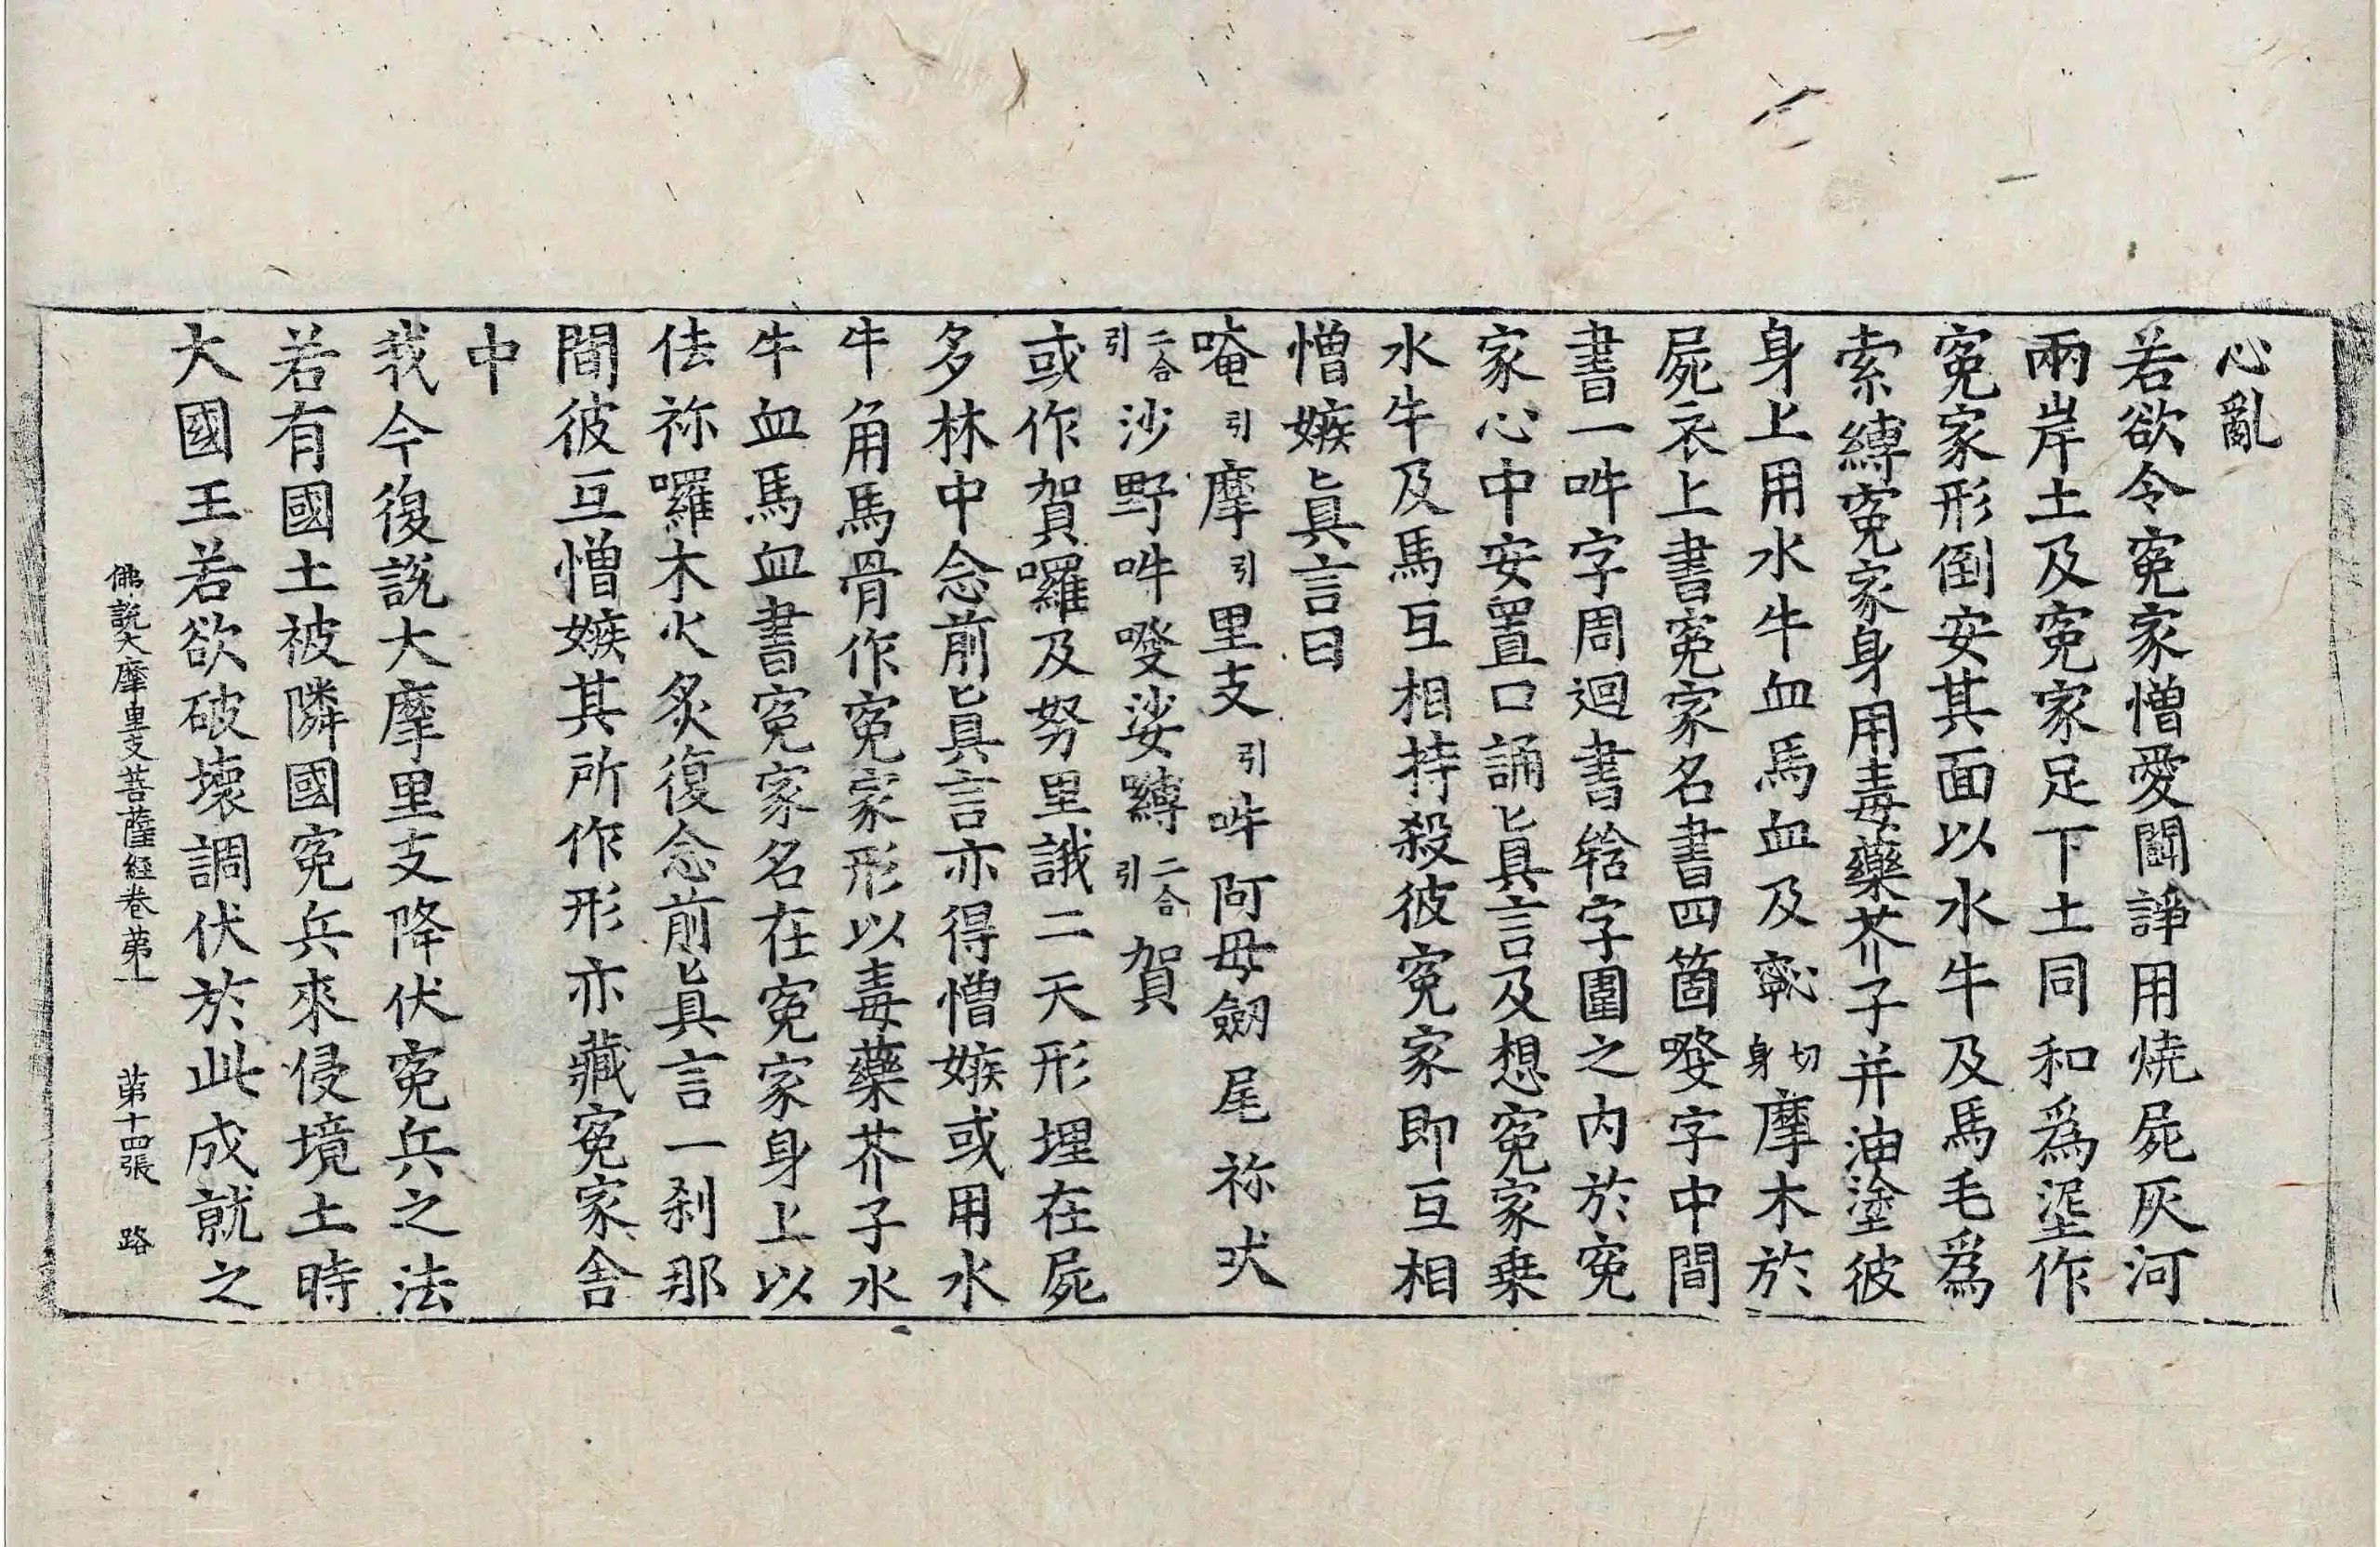 心亂
若欲令寃家憎愛鬪諍用燒屍灰河
兩岸土及寃家足下土同和爲埿作
寃家形倒安其面以水牛及馬毛爲
索縛寃家身用毒藥芥子并油塗彼
身上用水牛血馬血及 切身摩木於
屍衣上書寃家名書四箇癹字中間
書一吽字周迴書 字圍之内於寃
家心中安置口誦眞言及想寃家乗
水牛及馬互相持殺彼寃家即互相
憎嫉眞言曰
唵引摩引里支引吽阿母劔尾祢吠
二合引沙野吽癹娑嚩二合引賀
或作賀囉及努里誐二天形埋在屍
多林中念前眞言亦得憎嫉或用水
牛角馬骨作寃家形以毒藥芥子水
牛血馬血書寃家名在寃家身上以
佉祢囉木火炙復念前眞言一刹那
間彼互憎嫉其所作形亦藏寃家舍
中
我今復說大摩里支降伏寃兵之法
若有國土被隣國寃兵來侵境土時
大國王若欲破壞調伏於此成就之
佛說大摩里支菩薩經卷苐一 苐十四張 路